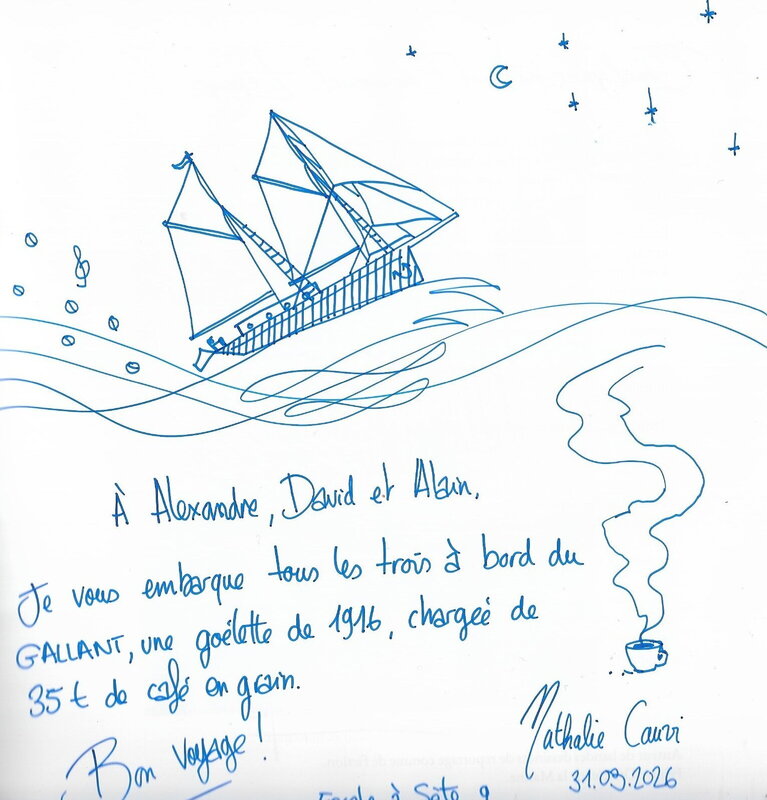 À Alexandre, David et Alain.
Je vous embarque tous les trois à bord du
GALLANT, une goélette de 1916, chargée de
35 t de café en grain.
Bon voyage !
Nathalie
31.03.2026
à Sète